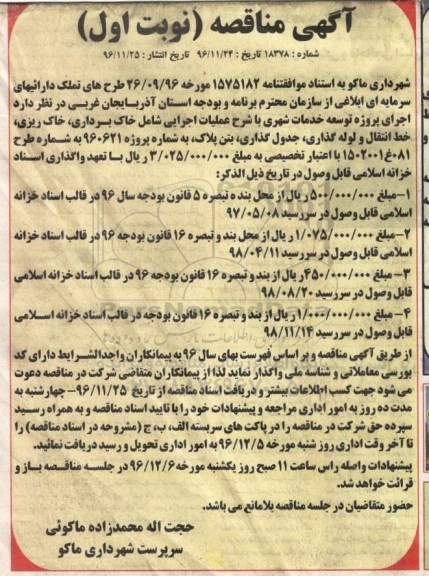 آگهی مناقصه (نوبت اول)
شماره : ۱۸۳۷۸ تاریخ : ۹۶/۱۱/۲۴ تاریخ انتشار : ۹۶/۱۱/۲۵
شهرداری ماکو به استناد موافقتنامه ۱۵۷۵۱۸۲ مورخه ۲۶/۰۹/۹۶ طرح های تملک دارائیهای
سرمایه ای ابلاغی از سازمان محترم برنامه و بودجه استان آذربایجان غربی در نظر دارد
اجرای پروژه توسعه خدمات شهری با شرح عملیات اجرایی شامل خاک برداری، خاک ریزی،
خط انتقال و لوله گذاری، جدول گذاری، بتن پلاک، به شماره پروژه ۹۶۰۶۲۱ به شماره طرح
۱۵۰۲۰۰۱غ۰۸۱ با اعتبار تخصیصی به مبلغ ۳/۰۲۵/۰۰۰/۰۰۰ ریال با تعهد واگذاری اسناد
خزانه اسلامی قابل وصول در تاریخ ذیل الذکر:
۱-مبلغ ۵۰۰/۰۰۰/۰۰۰ ریال از محل بند ه تبصره ۵ قانون بودجه سال ۹۶ در قالب اسناد خزانه
اسلامی قابل وصول در سررسید ۹۷/۰۵/۰۸
۲-مبلغ ۱/۰۷۵/۰۰۰/۰۰۰ ریال از محل بند و تبصره ۱۶ قانون بودجه ۹۶ در قالب اسناد خزانه
اسلامی قابل وصول در سررسید ۹۸/۰۴/۱۱
۳- مبلغ ۴۵۰/۰۰۰/۰۰۰ ریال از بند و تبصره ۱۶ قانون بودجه ۹۶ در قالب اسناد خزانه اسلامی
قابل وصول در سررسید ۹۸/۰۸/۲۰
۴- مبلغ ۱/۰۰۰/۰۰۰/۰۰۰ ریال از بند و تبصره ۱۶ قانون بودجه ۹۶ در قالب اسناد خزانه اسلامی
قابل وصول در سررسید ۹۸/۱۱/۱۴
از طریق آگهی مناقصه و بر اساس فهرست بهای سال ۹۶ به پیمانکاران واجدالشرایط دارای کد
بورسی معاملاتی و شناسه ملی واگذار نماید لذا از پیمانکاران متقاضی شرکت در مناقصه دعوت
می شود جهت کسب اطلاعات بیشتر و دریافت اسناد مناقصه از تاریخ ۹۶/۱۱/۲۵- چهارشنبه به
مدت ده روز به امور اداری مراجعه و پیشنهادات خود را با تایید اسناد مناقصه و به همراه رسید
سپرده حق شرکت در مناقصه را در پاکت های سربسته الف، ب، ج (مشروحه در اسناد مناقصه) را
تا آخر وقت اداری روز شنبه مورخه ۹۶/۱۲/۵ به امور اداری تحویل و رسید دریافت نمائید.
پیشنهادات واصله راس ساعت ۱۱ صبح روز یکشنبه مورخه ۹۶/۱۲/۶ در جلسه مناقصه باز و
قرائت خواهد شد.
حضور متقاضیان در جلسه مناقصه بلامانع می باشد.
حجت اله محمدزاده ماکوئی
سرپرست شهرداری ماکو